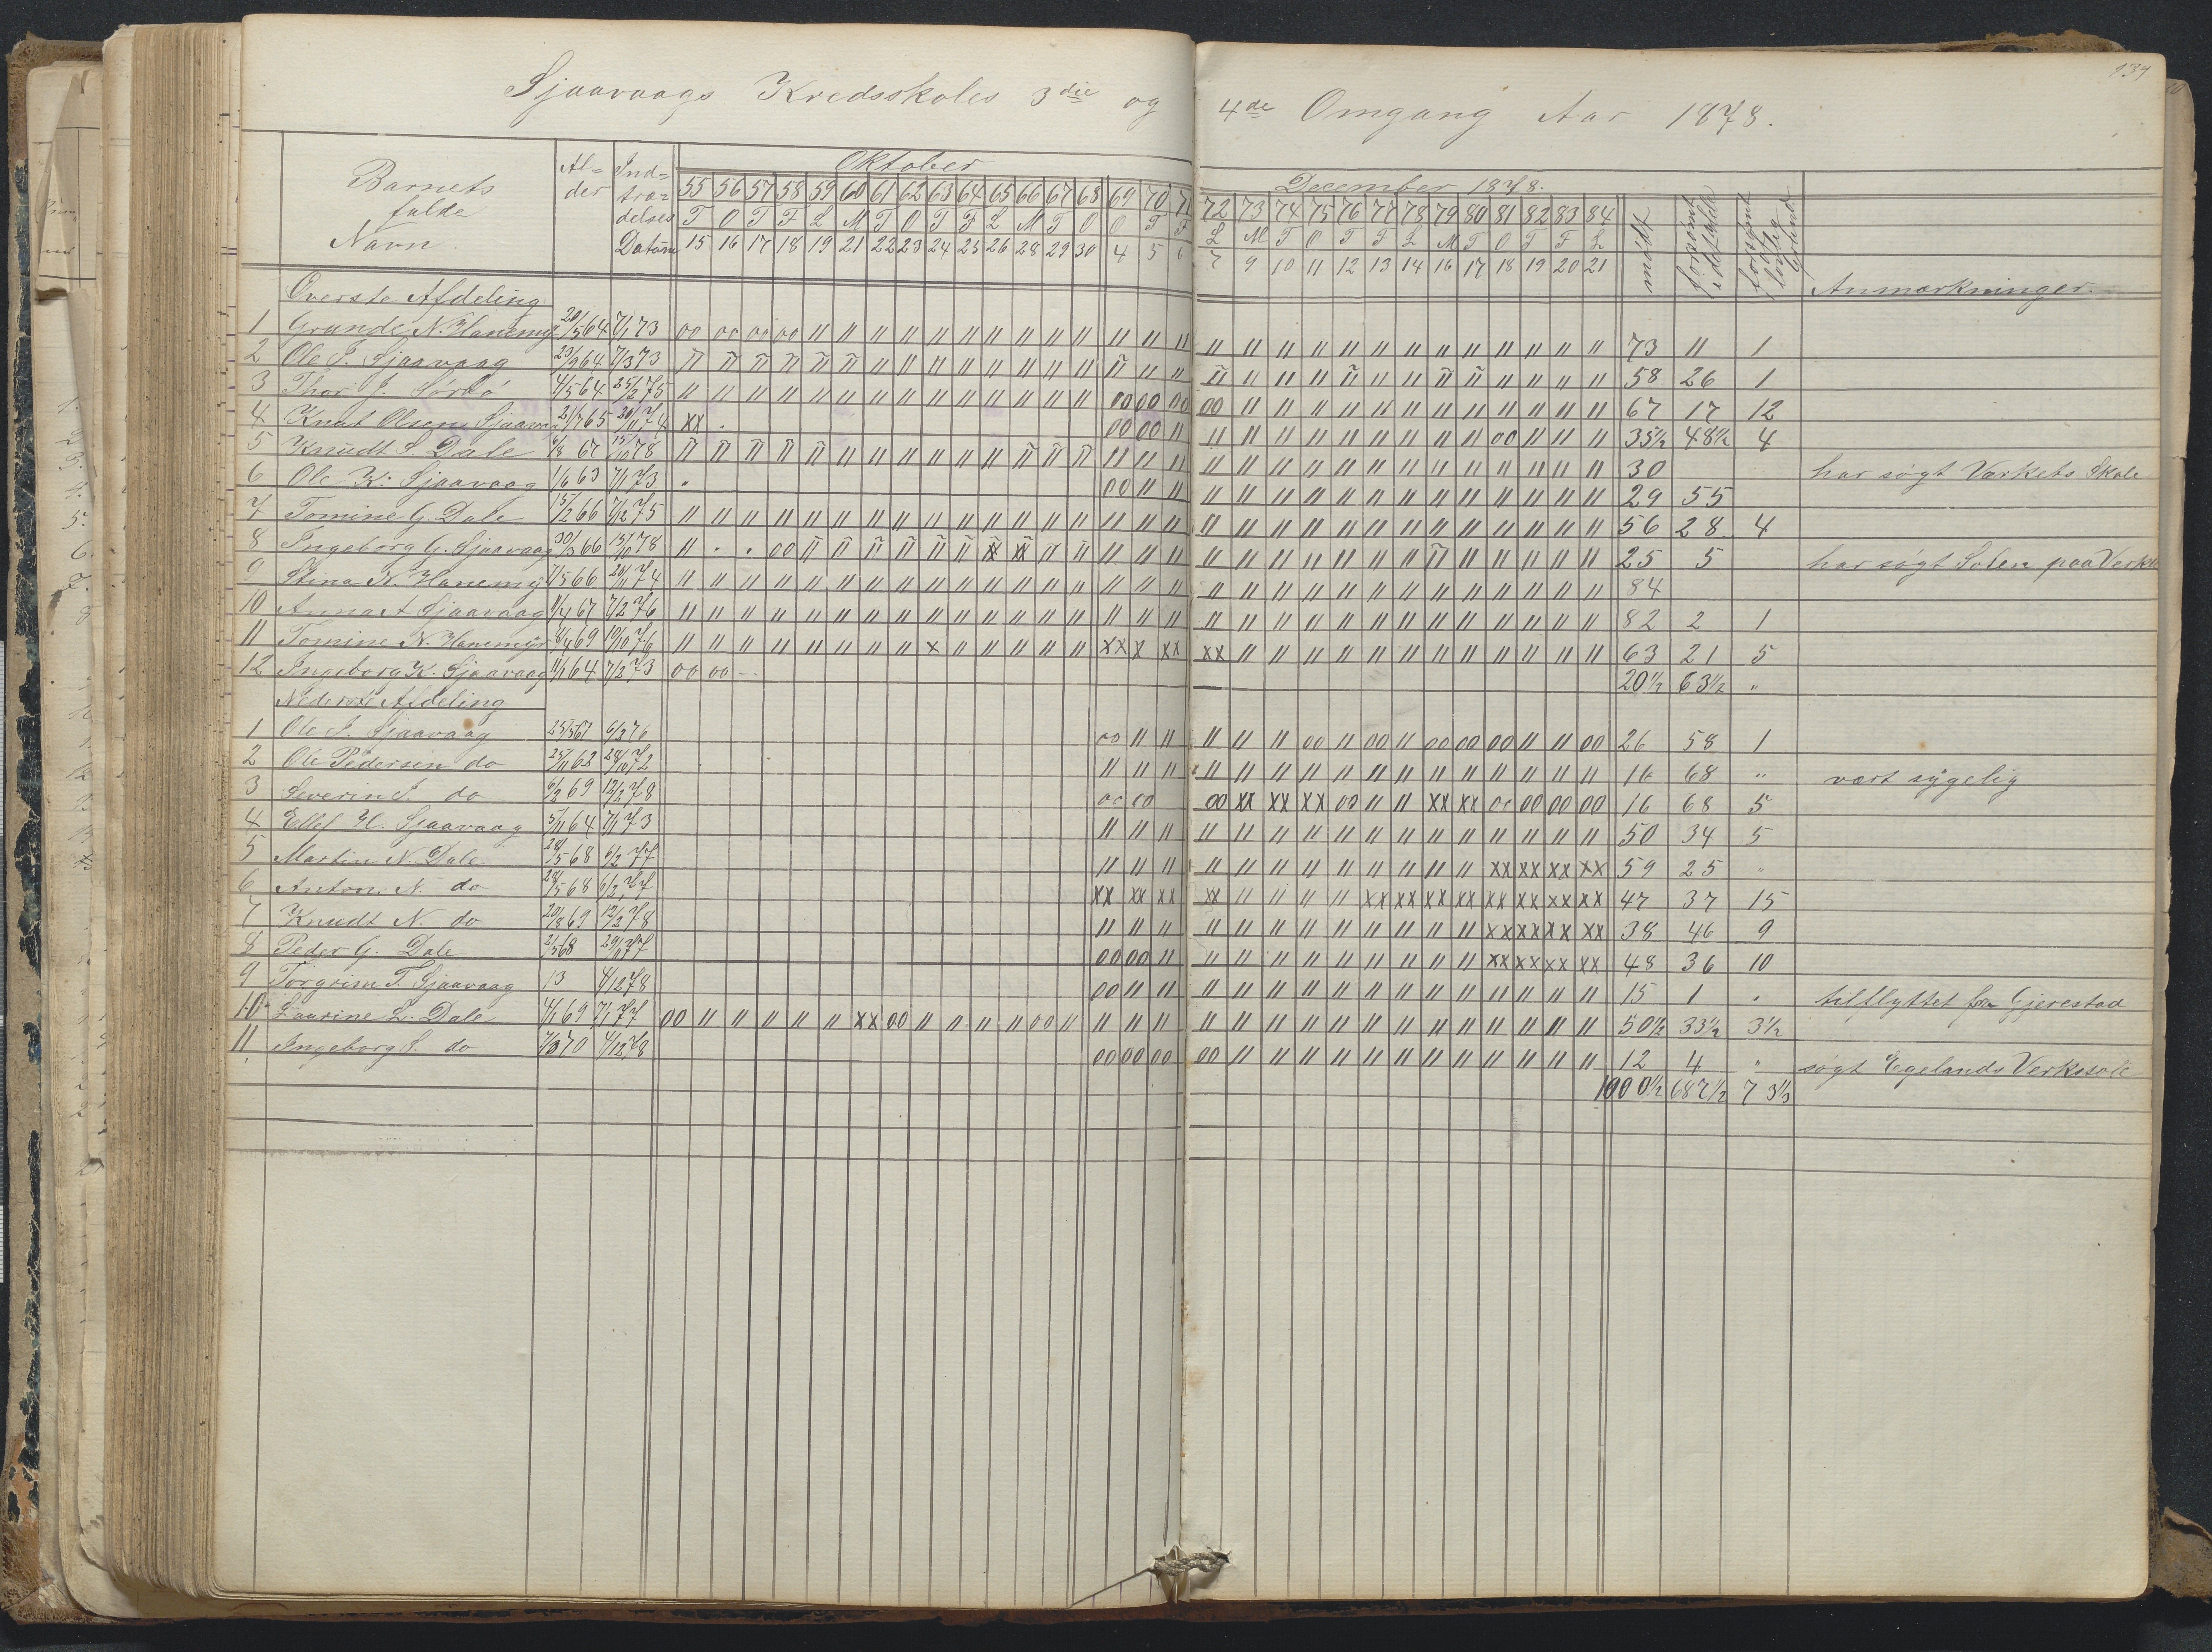 134
Sjaavaags Kredsskoles 3die og 4de Omgang Aar 1878.
Barnets fulde Navn. Al=der Ind=træ=delses Datum Oktober December 1878. mødt forsømt i det Hele forsømt uden lovlig Grund Anmærkninger.
55 56 57 58 59 60 61 62 63 64 65 66 67 68 69 70 71 72 73 74 75 76 77 78 79 80 81 82 83 84
T O T F L M T O T F L M T O O T F L M T O T F L M T O T F L
15 16 17 18 19 21 22 23 24 25 26 28 29 30 4 5 6 7 9 10 11 12 13 14 16 17 18 19 20 21
Øverste Afdeling
1 Grunde N. Hanemyr 20/5 64 7/1 73 oo oo oo oo 11 11 11 11 11 11 11 11 11 11 11 11 11 11 11 11 11 11 11 11 11 11 11 11 11 11 73 11 1
2 Ole J. Sjaavaag 23/9 64 7/3 73 58 26 1
3 Thor J. Sørbø 4/5 64 25/2 75 11 11 11 11 11 11 11 11 11 11 11 11 11 11 oo oo oo oo 11 11 11 11 11 11 11 11 11 11 11 11 67 17 12
4 Knut Olsen Sjaavaag 21/7 65 20/11 74 xx . oo oo 11 11 11 11 11 11 11 11 11 11 oo 11 11 11 35½ 48½ 4
5 Knudt S. Dale 6/8 67 15/10 78 30 har søgt Værkets Skole
6 Ole K. Sjaavaag 1/6 63 7/1 73 . oo 11 11 11 11 11 11 11 11 11 11 11 11 11 11 11 29 55
7 Tomine G. Dale 15/2 66 7/12 75 11 11 11 11 11 11 11 11 11 11 11 11 11 11 11 11 11 11 11 11 11 11 11 11 11 11 11 11 11 11 56 28 4
8 Ingeborg G. Sjaavaag 30/3 66 15/10 78 25 5 har søgt Solen paa Verket
9 Stina N. Hanemyr 7/5 66 20/11 74 11 11 11 11 11 11 11 11 11 11 11 11 11 11 11 11 11 11 11 11 11 11 11 11 11 11 11 11 11 11 84
10 Anna A Sjaavaag 1/4 67 7/2 76 11 11 11 11 11 11 11 11 11 11 11 11 11 11 11 11 11 11 11 11 11 11 11 11 11 11 11 11 11 11 82 2 1
11 Tomine N. Hanemyr 8/4 69 19/10 76 11 11 11 11 11 11 11 11 x 11 11 11 11 11 xx x xx xx 11 11 11 11 11 11 11 11 11 11 11 11 63 21 5
12 Ingeborg K. Sjaavaag 11/1 64 7/2 73 oo oo 20½ 63½ "
Nederste Afdeling
1 Ole J. Sjaavaag 25/5 67 6/2 76 oo 11 11 11 11 11 oo 11 oo 11 oo oo oo 11 11 oo 26 58 1
2 Ole Pedersen do 25/11 63 28/10 72 11 11 11 11 11 11 11 11 11 11 11 11 11 11 11 11 16 68 " vært sygelig
3 Severin J. do 6/2 69 12/2 78 oo oo oo xx xx xx oo 11 11 xx xx oo oo oo oo 16 68 5
4 Ellef H. Sjaavaag 5/11 64 7/1 73 11 11 11 11 11 11 11 11 11 11 11 11 11 11 11 11 50 34 5
5 Martin N. Dale 28/5 68 6/2 77 11 11 11 11 11 11 11 11 11 11 11 11 xx xx xx xx 59 25 "
6 Anton. N. do 28/5 68 6/2 77 xx xx xx xx 11 11 11 11 xx xx xx xx xx xx xx xx 47 37 15
7 Knudt N. do 20/8 69 12/2 78 11 11 11 11 11 11 11 11 11 11 11 11 xx xx xx xx 38 46 9
8 Peder G. Dale 2/5 68 29/1 77 oo oo 11 11 11 11 11 11 11 11 11 11 xx xx xx xx 48 36 10
9 Torgrim T. Sjaavaag 13 4/12 78 oo 11 11 11 11 11 11 11 11 11 11 11 11 11 11 11 15 1 " tilflyttet fra Gjerestad
10 Laurine L. Dale 4/1 69 7/1 77 oo 11 11 11 11 11 xx oo 11 11 11 11 oo 11 11 11 11 11 11 11 11 11 11 11 11 11 11 11 11 11 50½ 33½ 3½
11 Ingeborg S. do 7/3 70 4/12 78 oo oo oo oo 11 11 11 11 11 11 11 11 11 11 11 11 12 4 " søgt Egelands Verksskole
1000½ 687½ 73½